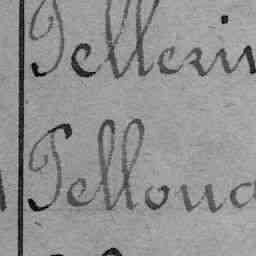 Pellerin
Pelloua